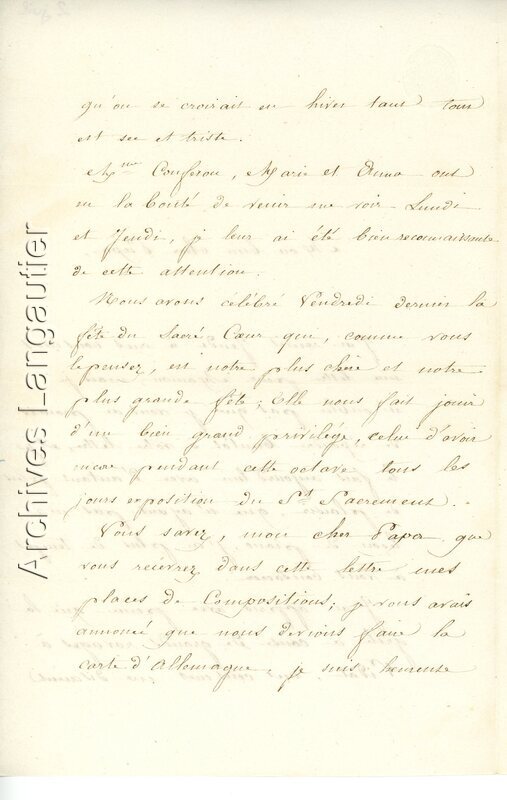 qu'on se croirait en hiver tant tout
est sec et triste.
Mme Couferou, Marie et Anna ont
eu la bonté de venir me voir Lundi
et Jeudi, je leur ai été bien reconnaissante
de cette attention.
Nous avons célébré Vendredi dernier la
fête du Sacré Cœur que, comme vous
le pensez, est notre plus chère et notre
plus grande fête; Elle nous fait jouir
d'un bien grand privilège, celui d'avoir
encor pendant cette octave tous les
jours exposition du St Sacrement.
Vous savez, mon cher Papa que
vous recevrez dans cette lettre mes
places de Compositions; je vous avais
annoncé que nous devions faire la
carte d'Allemagne, je suis heureuse
Archives Langautier